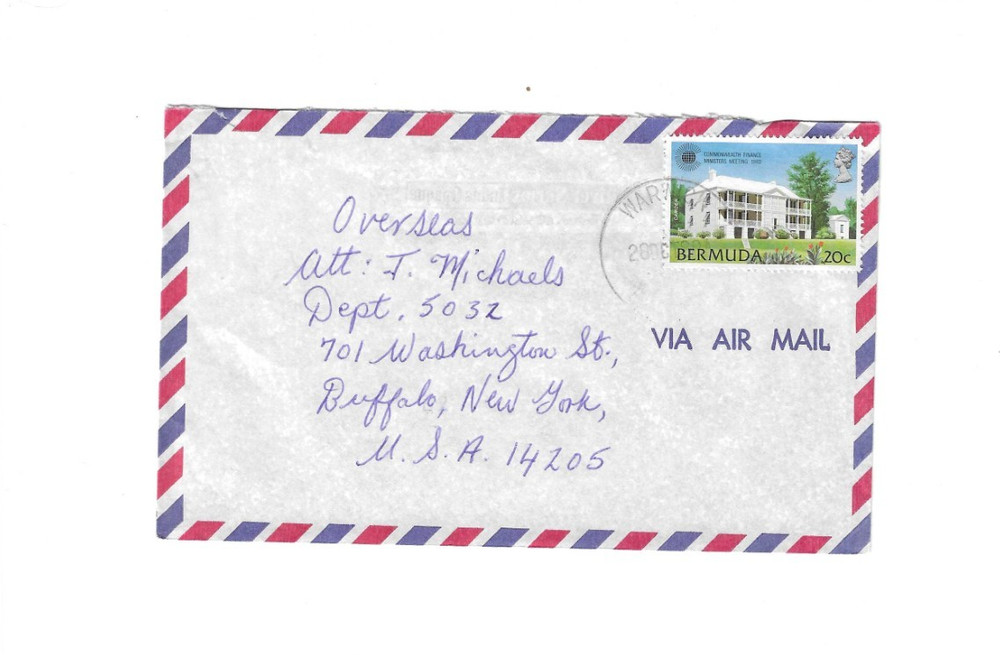 COMMONWEALTH FINANCE
MINISTERS MEETING 1980
BERMUDA 20c
VIA AIR MAIL
Overseas
Att: J. Michaels
Dept. 5032
701 Washington St.,
Buffalo, New York,
U. S. A. 14205